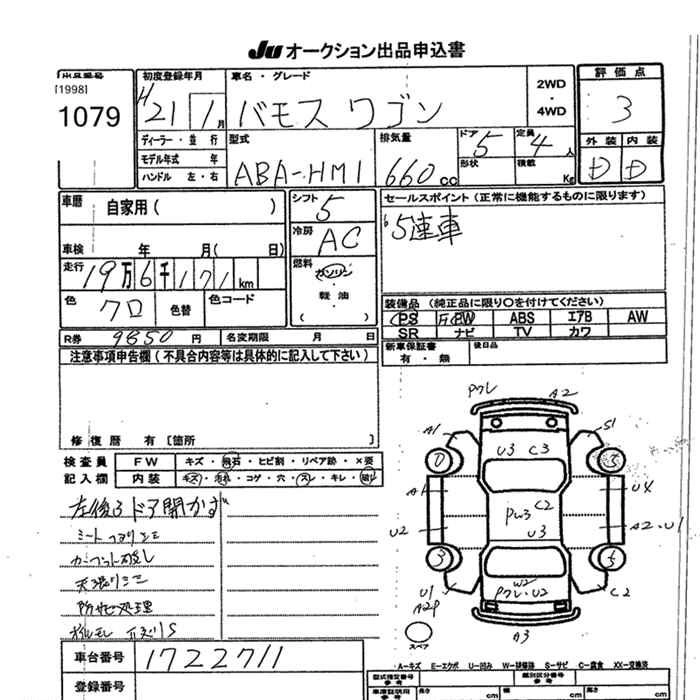 Ju オークション出品申込書
出品番号
[1998]
1079
初度登録年月
H21 1 月
車名・グレード
バモス ワゴン
2WD
・
4WD
評価点
3
外装 内装
D D
ディーラー・並行
モデル年式 年
ハンドル 左・右
型式
ABA-HM1
排気量
660 cc
ドア 5
形状
定員 4 人
積載 Kg
車歴 自家用( )
車検 年 月( 日)
走行 19万6千171 km
色 クロ 色替 色コード
シフト 5
冷房 AC
燃料
ガソリン
・
軽油
・
( )
セールスポイント(正常に機能するものに限ります)
5速車
装備品(純正品に限り○を付けてください)
PS PW ABS エアB AW
SR ナビ TV カワ
R券 9850 円 名変期限 月 日
新車保証書
有・無
後日品
注意事項申告欄(不具合内容等は具体的に記入して下さい)
修復歴 有[箇所 ]
検査員
記入欄
FW キズ・飛石・ヒビ割・リペア跡・×要
内装 キズ・汚れ・コゲ・穴・スレ・キレ・破レ
左後ろドア開かず
天張りシミ
防錆処理
Pクレ A2
A1 S1
U3 C3
A1 U4
C2
PW3
U2 U3 A2・U1
3 5
U1 W2 C2
A2P Pクレ・U2
A3
スペア
A-キズ E-エクボ U-凹み W-補修跡 S-サビ C-腐食 XX-交換済
車台番号 1722711
登録番号
型式指定番号
参考
類別区分番号
参考
車庫証明用
長さ cm 幅 cm 高さ cm